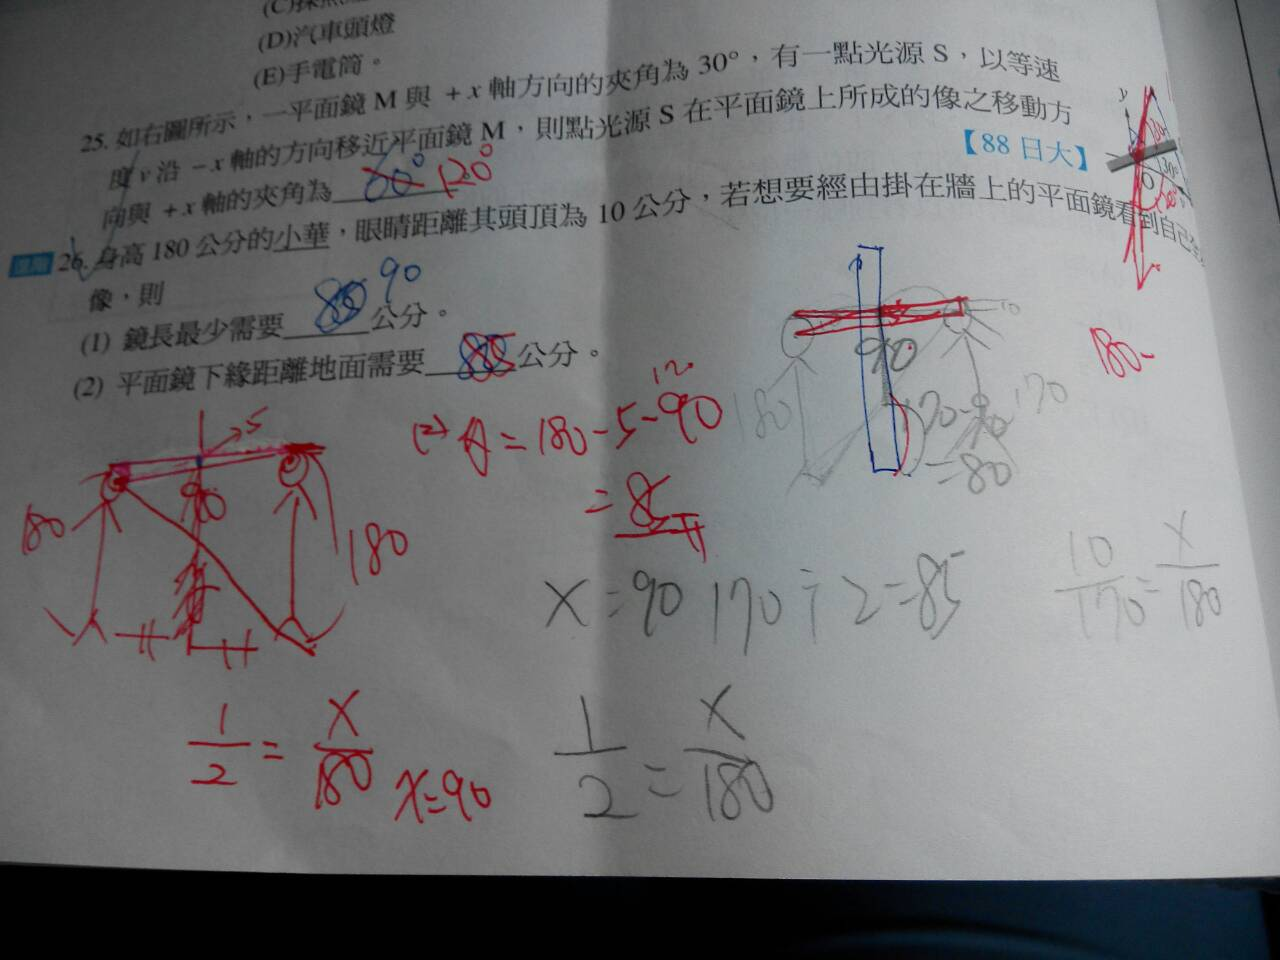 (D)汽車頭燈
(E)手電筒。
25. 如右圖所示，一平面鏡 M 與 +x 軸方向的夾角為 30°，有一點光源 S，以等速
度 v 沿 −x 軸的方向移近平面鏡 M，則點光源 S 在平面鏡上所成的像之移動方
向與 +x 軸的夾角為 60° 120°
【88 日大】
y
30°
進階 26. 身高 180 公分的小華，眼睛距離其頭頂為 10 公分，若想要經由掛在牆上的平面鏡看到自己全
像，則
(1) 鏡長最少需要 80 90 公分。
(2) 平面鏡下緣距離地面需要 85 公分。
10
180-
90
180
170-90
170
=80
(2) A = 180-5-90
= 85
5
180
90
180
X = 90
170÷2=85
10/170 = X/180
1/2 = X/180
X=90
1/2 = X/180